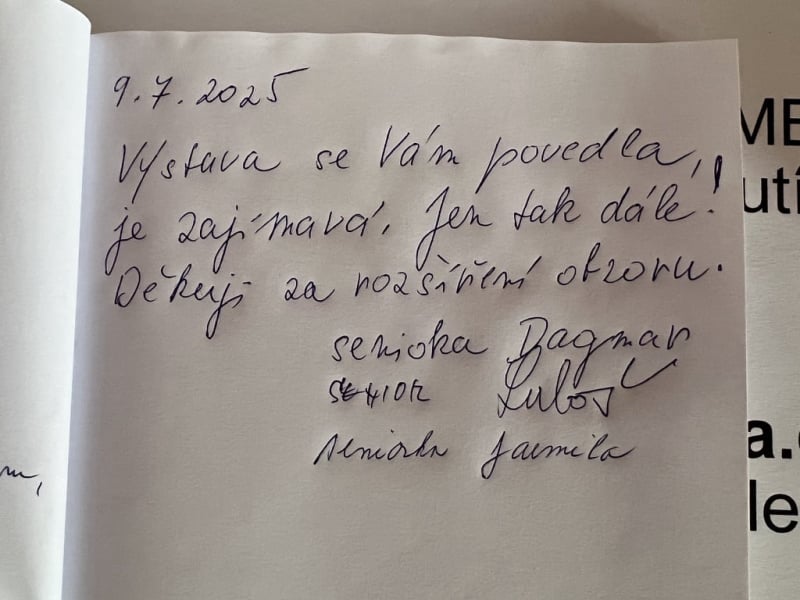 9.7.2025
Výstava se Vám povedla,
je zajímavá. Jen tak dále!
Děkuji za rozšíření obzoru.
seniorka Dagmar
senior Luboš
seniorka Jarmila
ME
utí
a.
le